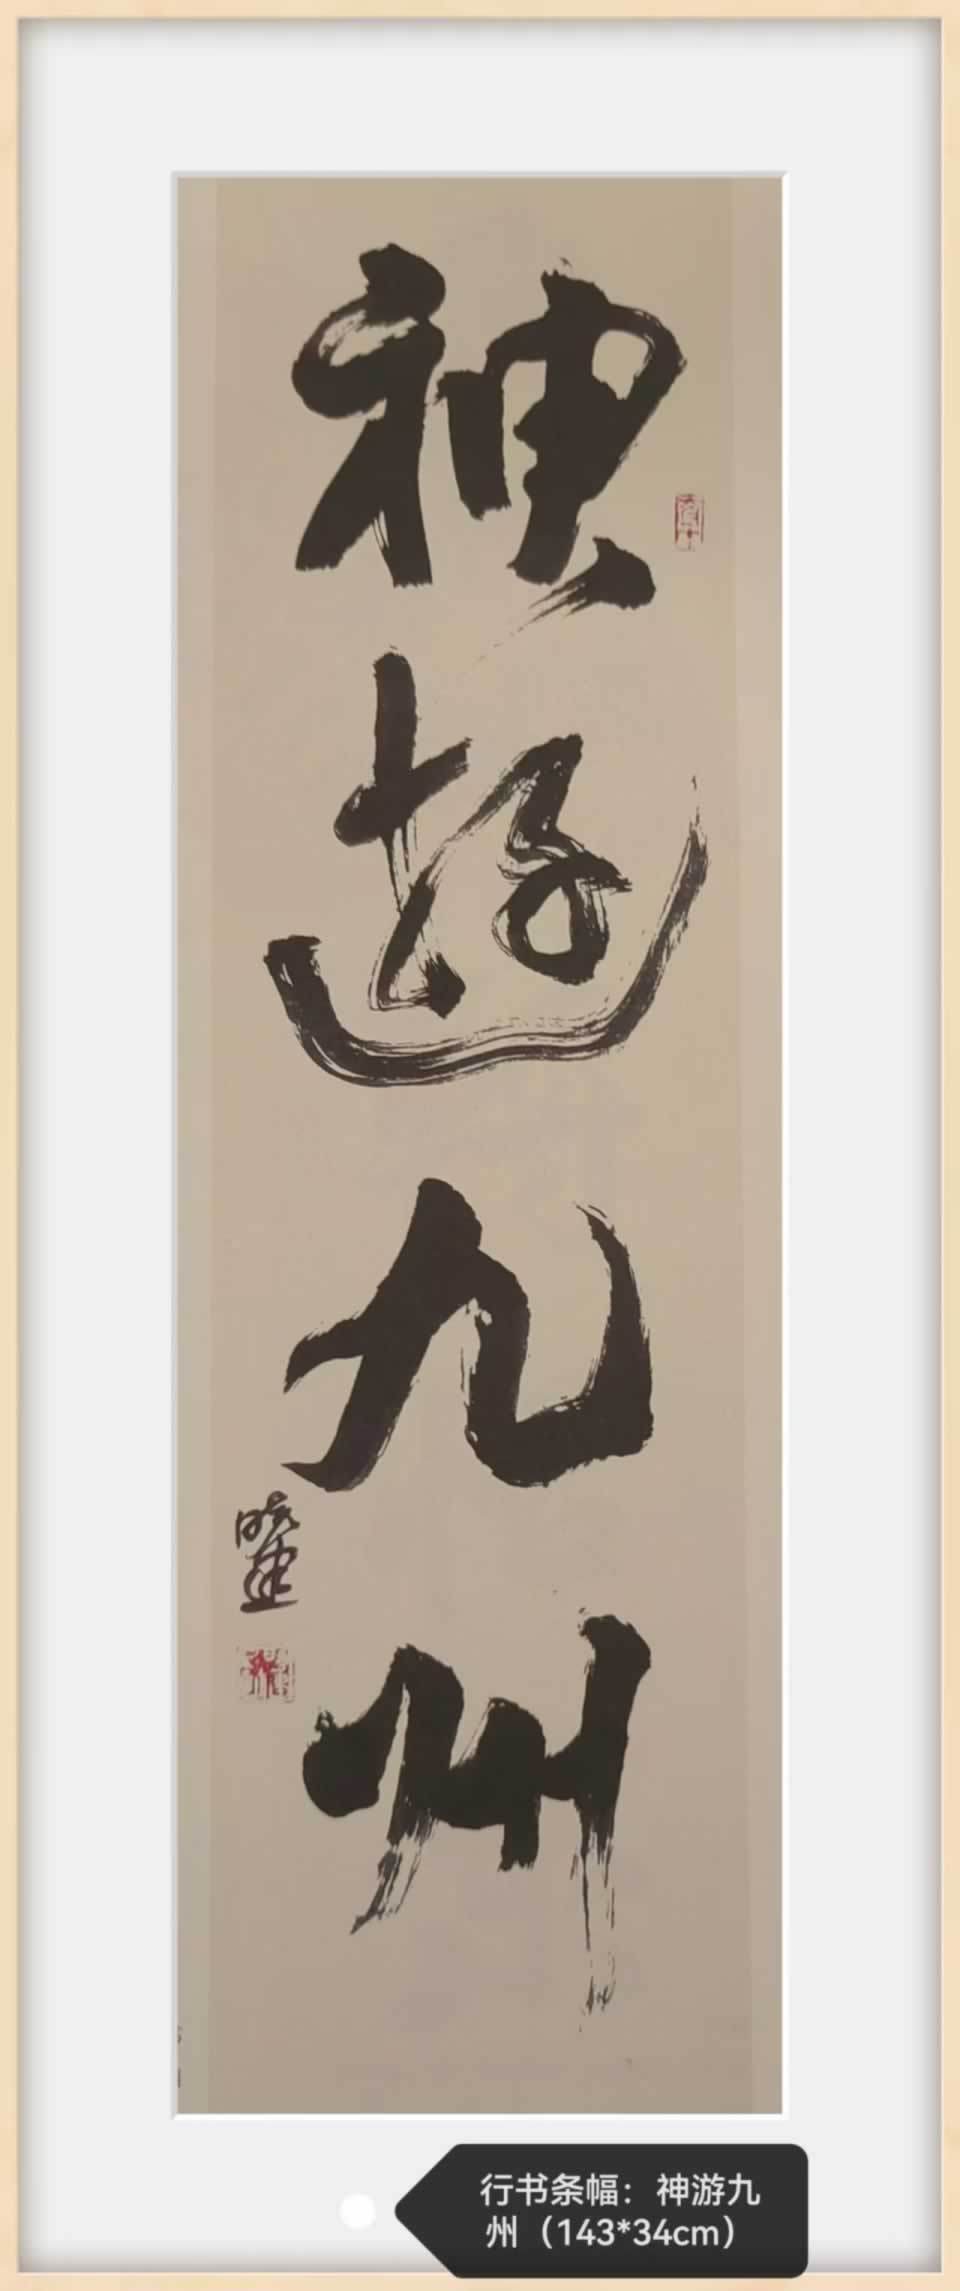 神遊九州
行书条幅：神游九
州（143*34cm）